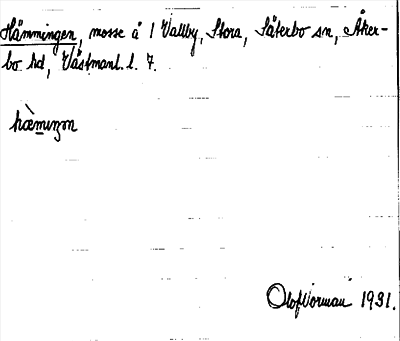 Hämmingen, mosse å 1 Vallby, Stora, Säterbo sn, Åker-
bo hd, Västmanl. l. 7.
hæ̀mıŋən
Olof Norman 1931.